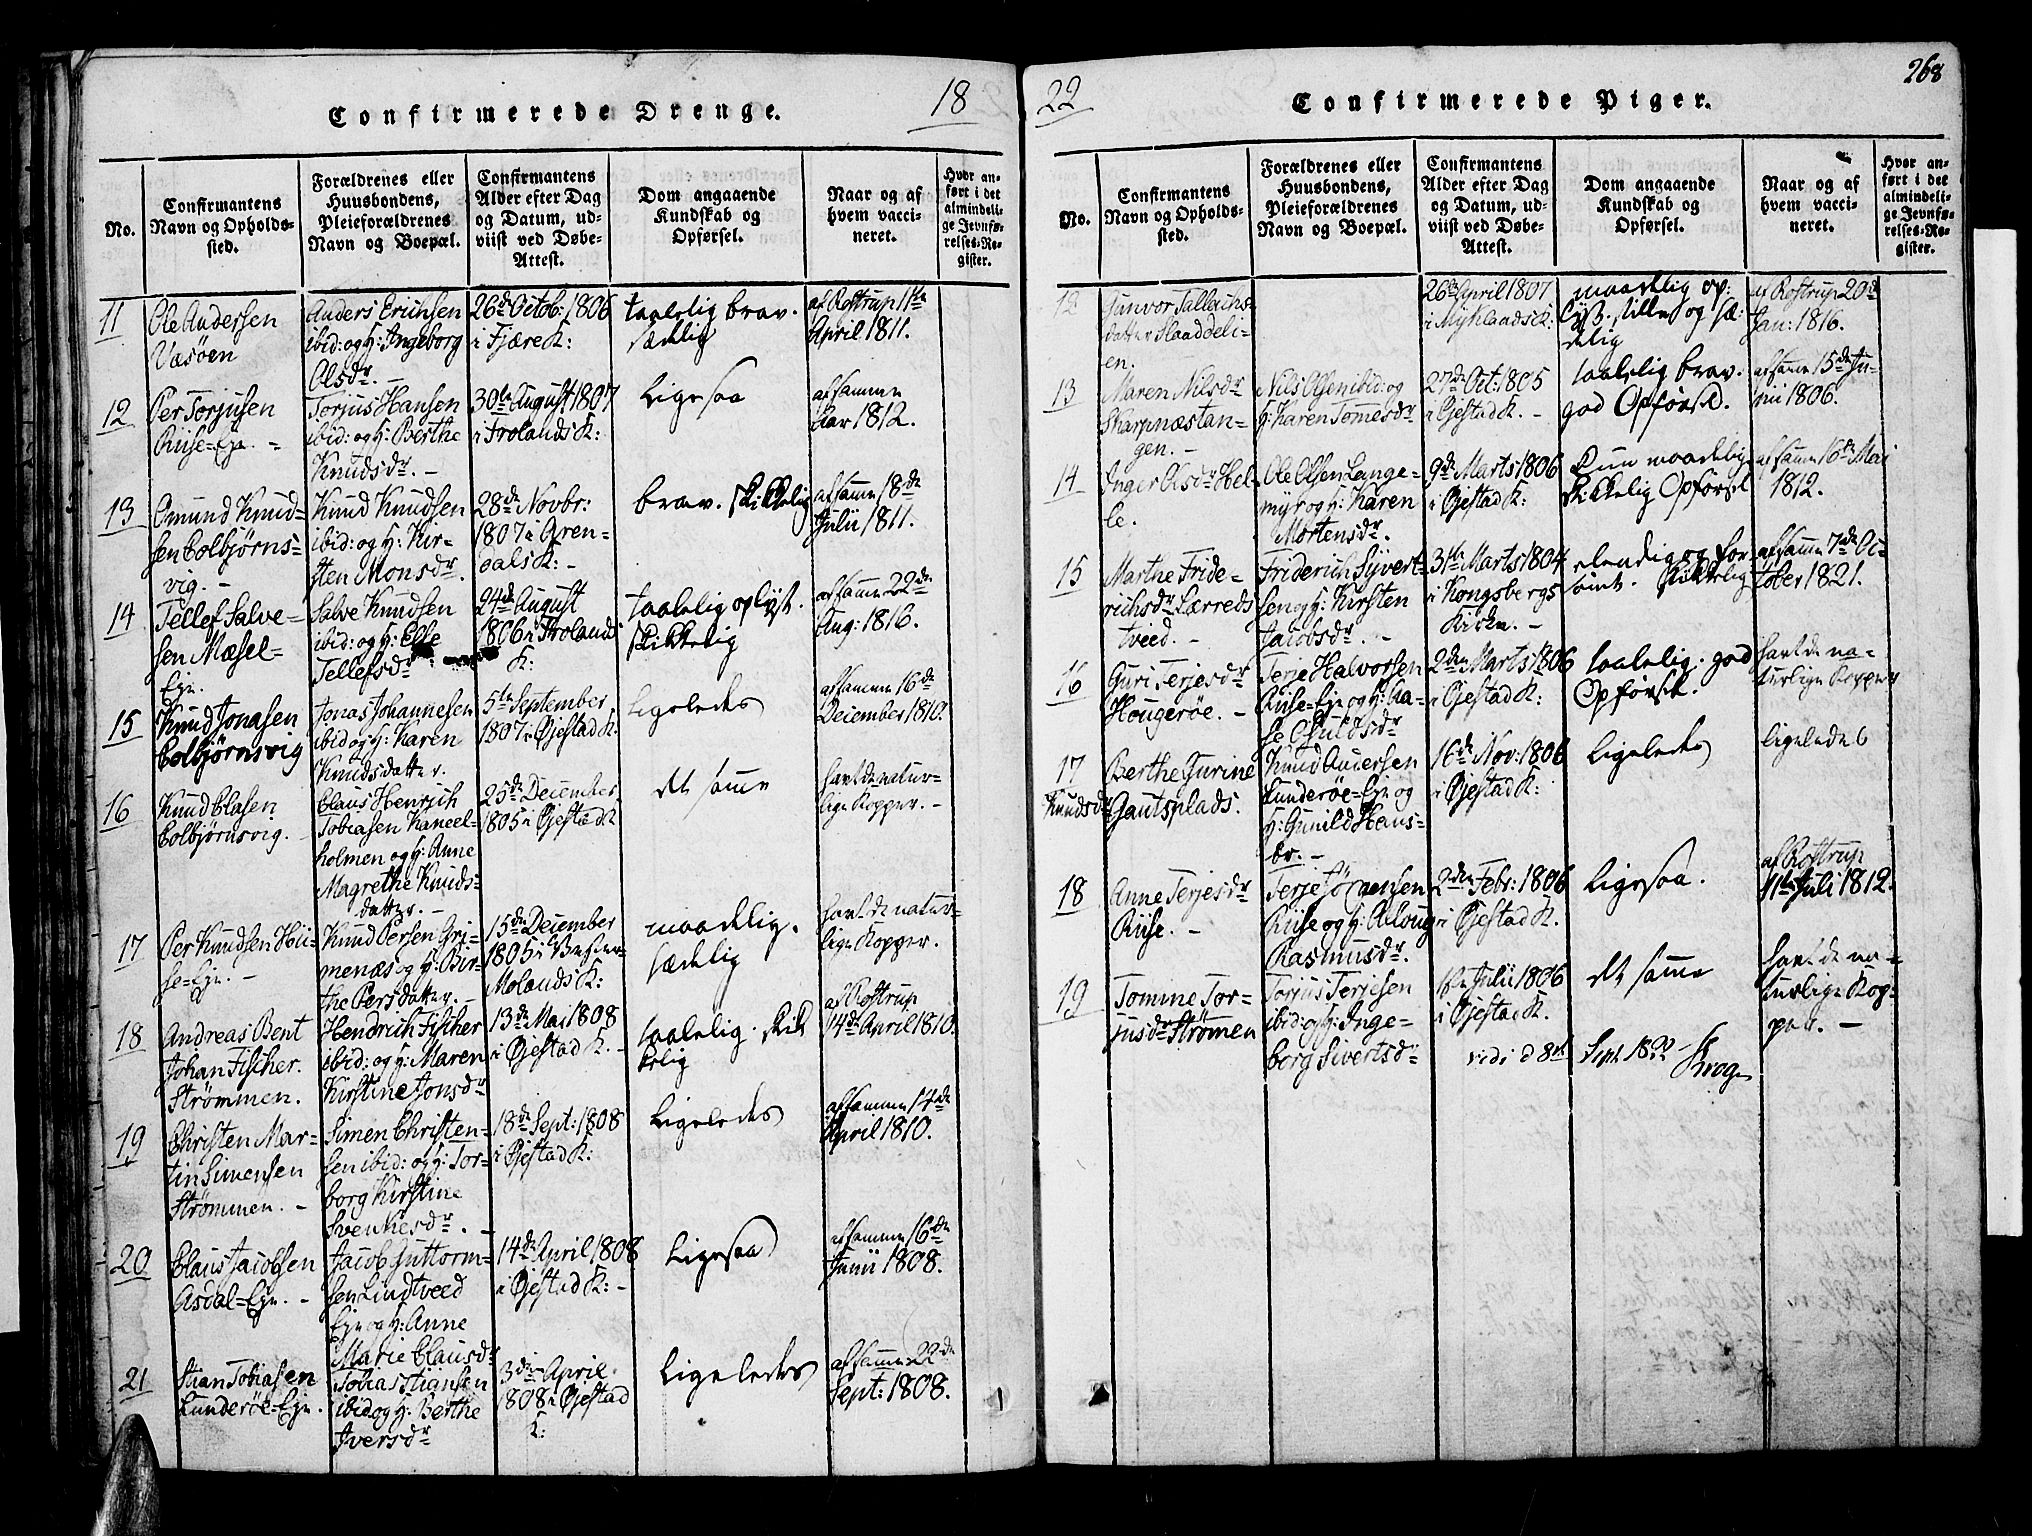 18
Confirmerede Drenge.
No.
Confirmantens
Navn og Opholds-
sted.
Forældrenes eller
Huusbondens,
Pleieforældrenes
Navn og Boepæl.
Confirmantens
Alder efter Dag
og Datum, ud-
viist ved Døbe-
Attest.
Dom angaaende
Kundskab og
Opførsel.
Naar og af
hvem vacci-
neret.
Hvor an-
ført i det
almindeli-
ge Jevnfø-
relses-Re-
gister.
11
Ole Andersen
Vasøen
Anders Erichsen
ibid: og H: Ingeborg
Olsdr. -
26de Octob: 1806
i Fjære K:
taalelig brav.
sædelig
af Rostrup 11te
April 1811.
12
Per Torjusen
Riise-Eje. -
Torjus Hansen
ibid: og H: Berthe
Knudsdr. -
30te August 1807
i Frolands K:
Ligesaa
af samme
Aar 1812.
13
Omund Knud-
sen Colbjørns-
vig. -
Knud Knudsen
ibid: og H: Kir-
sten Monsdr.
28de Novbr:
1807 i Aren-
dals K: -
brav. skikkelig
af samme 18de
Julii 1811.
14
Tellef Salve-
sen Mæsel-
Eje.
Salve Knudsen
ibid: og H: Elle
Tellefsdr
24de August
1806 i Frolands
K:
taalelig oplyst.
skikkelig
af samme 22de
Aug: 1816.
15
Knud Jonasen
Colbjørnsvig
Jonas Johannesen
ibid og H: Karen
Knudsdatter.
5te September
1807 i Øjestad K.
Ligeledes
af samme 16de
December 1810.
16
Knud Clasen
Colbjørnsvig.
Claus Henrich
Tobiasen Kaneel-
holmen og H: Anne
Magrethe Knuds-
datter. -
25de December
1805 i Øjestad K
det samme
havt de natur-
lige Kopper. -
17
Per Knudsen Hii-
se-Eje. -
Knud Persen Gri-
menæs og H: Bir-
the Persdatter. -
15de December
1805 i Vester-
Molands K:
maadelig.
sædelig
havt de natur-
lige Kopper.
18
Andreas Bent
Johan Fischer.
Strømmen.
Hendrich Fischer
ibid: og H: Maren
Kirstine Jonsdr
13de Mai 1808
i Øjestad K. -
taalelig. skik
kelig
af Rostrup
14de April 1810.
19
Christen Mar-
tin Simensen
Strømmen. -
Simen Christen-
sen ibid: og H: Tor-
borg Kirstine
Svenkesdr. -
18de Sept: 1808
i Øjestad K:
Ligeledes
af samme 14de
April 1810.
20
Claus Jacobsen
Asdal-Eje. -
Jacob Guttorm-
sen Lindtveed
Eje og H: Anne
Marie Clausdr
14de April 1808
i Øjestad K: -
Ligesaa
af samme 16de
Junii 1808.
21
Stian Tobiasen
Lunderøe-Eje.
Tobias Stiansen
ibid og H: Berthe
Iversdr
3die April
1808 i Øjestad
K:
Ligeledes
af samme 22de
Sept: 1808.
268
22
Confirmerede Piger.
No.
Confirmantens
Navn og Opholds-
sted.
Forældrenes eller
Huusbondens,
Pleieforældrenes
Navn og Boepæl.
Confirmantens
Alder efter Dag
og Datum, ud-
viist ved Døbe-
Attest.
Dom angaaende
Kundskab og
Opførsel.
Naar og af
hvem vacci-
neret.
Hvor an-
ført i det
almindeli-
ge Jevnfø-
relses-Re-
gister.
12
Gunvor Tallechs-
datter Slaaddeli-
en.
26de April 1807
i Myklands K:
maadelig op:
lyst. stille og sæ:
delig
af Rostrup 20de
Jan: 1816.
13
Maren Nilsdr
Skarpnæstan-
gen. -
Nils Olsen ibid: og
H: Karen Tomesdr
27de Oct: 1805
i Øjestad K. -
taalelig brav.
god Opførsel.
af samme 15de Ju-
nii 1806.
14
Inger Olsdr Hel-
le.
Ole Olsen Lange-
myr og H: Karen
Mortensdr.
9de Marts 1806
i Øjestad K:
kun maadelig
skikkelig Opførsel
af samme 16de Mai
1812.
15
Marthe Fride-
richsdr Lærreds
tveed. -
Friderich Syvert-
sen og H: Kirsten
Jacobsdr. -
31te Marts 1804
i Kongsbergs
Kirke. -
elendig og for
sømt. skikkelig
af samme 7de Oc-
tober 1821.
16
Guri Terjesdr
Hougerøe. -
Terje Halvorsen
Riise-Eje og H: Aa-
se Osuldsdr
2den Marts 1806
i Øjestad K:
taalelig. god
Opførsel.
havt de na-
turlige Kopper
17
Berthe Gurine
Knudsdr Gautsplads.
Knud Andersen
Lunderøe-Eje og
H: Gunild Hans-
dr. -
16de Nov: 1806
i Øjestad K:
ligeledes
ligeledes
18
Anne Terjesdr
Riise. -
Terje Sørensen
Riise og H: Aaloug
Rasmusdr.
2den Febr: 1806
i Øjestad K.
ligesaa.
af Rostrup
11te Juli 1812.
19
Tomine Tor-
jusdr Strømen
Torjus Terjesen
ibid: og H: Inge-
borg Sivertsdr
18de Julii 1806
i Øjestad K.
det samme
havt de na-
turlige Kop-
per. -
vidi d 8de Sept. 1822
Krog